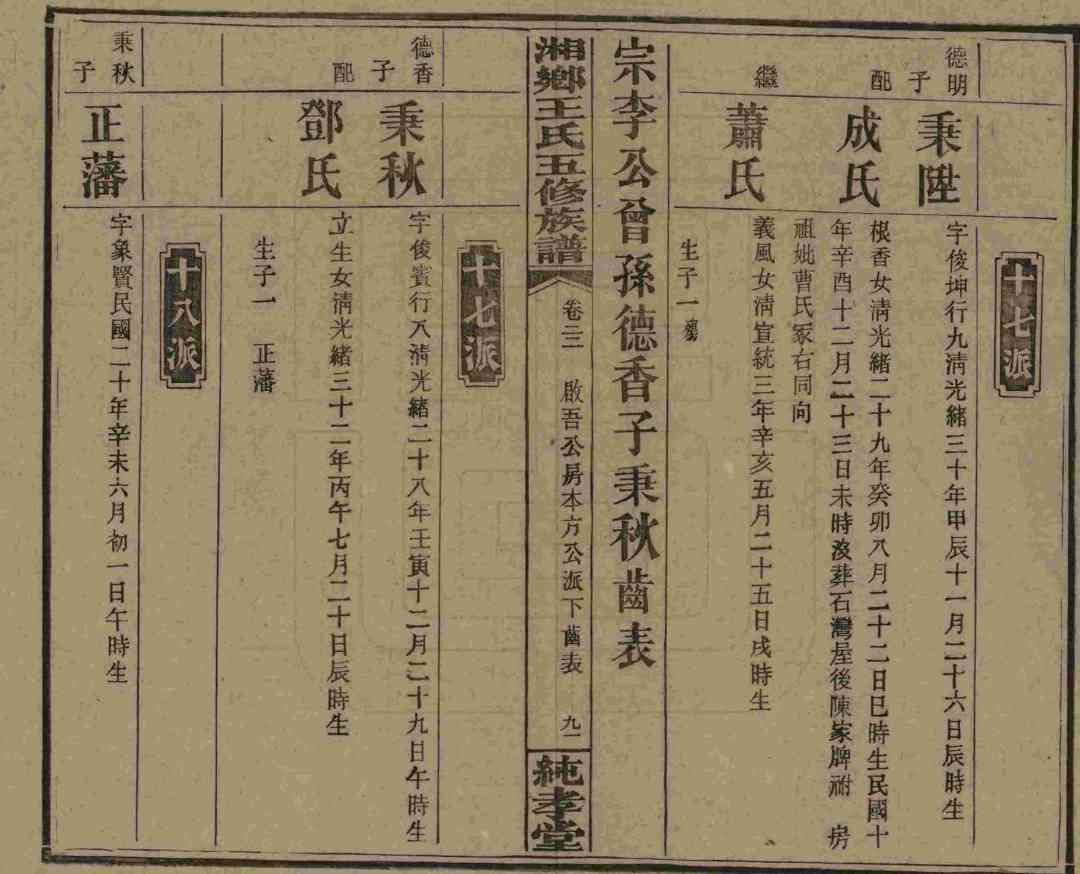 十七派
德明子
秉陞
字俊坤行九淸光緒三十年甲辰十一月二十六日辰時生
配
成氏
根香女淸光緒二十九年癸卯八月二十二日巳時生民國十
年辛酉十二月二十三日未時沒葬石灣屋後陳家牌祔房
祖妣曹氏冢右同向
繼
蕭氏
義風女淸宣統三年辛亥五月二十五日戌時生
生子一
宗李公曾孫德香子秉秋齒表
湘鄉王氏五修族譜
卷三二
啟吾公房本方公派下齒表
九一
純孝堂
十七派
德香子
秉秋
字俊賓行八淸光緒二十八年壬寅十二月二十九日午時生
配
鄧氏
立生女淸光緒三十二年丙午七月二十日辰時生
生子一 正藩
十八派
秉秋子
正藩
字象賢民國二十年辛未六月初一日午時生